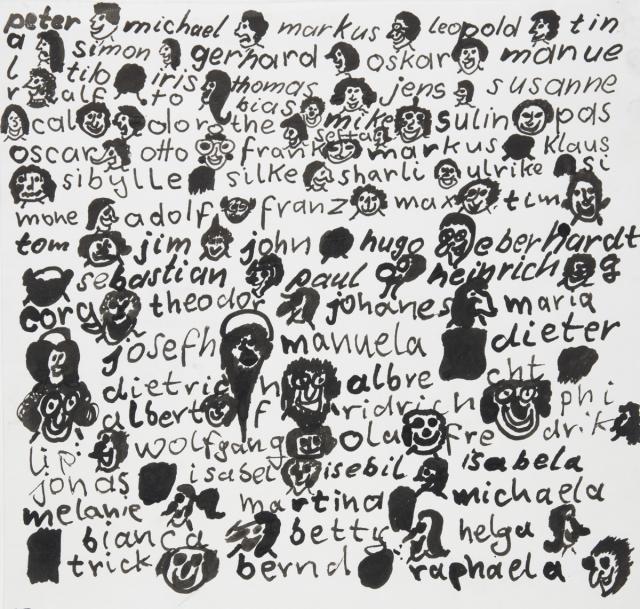 peter michael markus leopold tin
a simon gerhard oskar manue
l tilo iris thomas jens susanne
r alf to bias
cal dor the mike sulin pas
oscar otto frank markus klaus
sibylle silke sharli ulrike si
mone adolf franz max tim
tom jim john hugo eberhardt
sebastian paul heinrich g
corg theodor johanes maria
josefh manuela dieter
dietrich albre cht phi
albert f ridrich
lip wolfgang ola fre drik
jonas isabel isebil isabela
melanie martina michaela
bianca betty helga
trick bernd raphaela